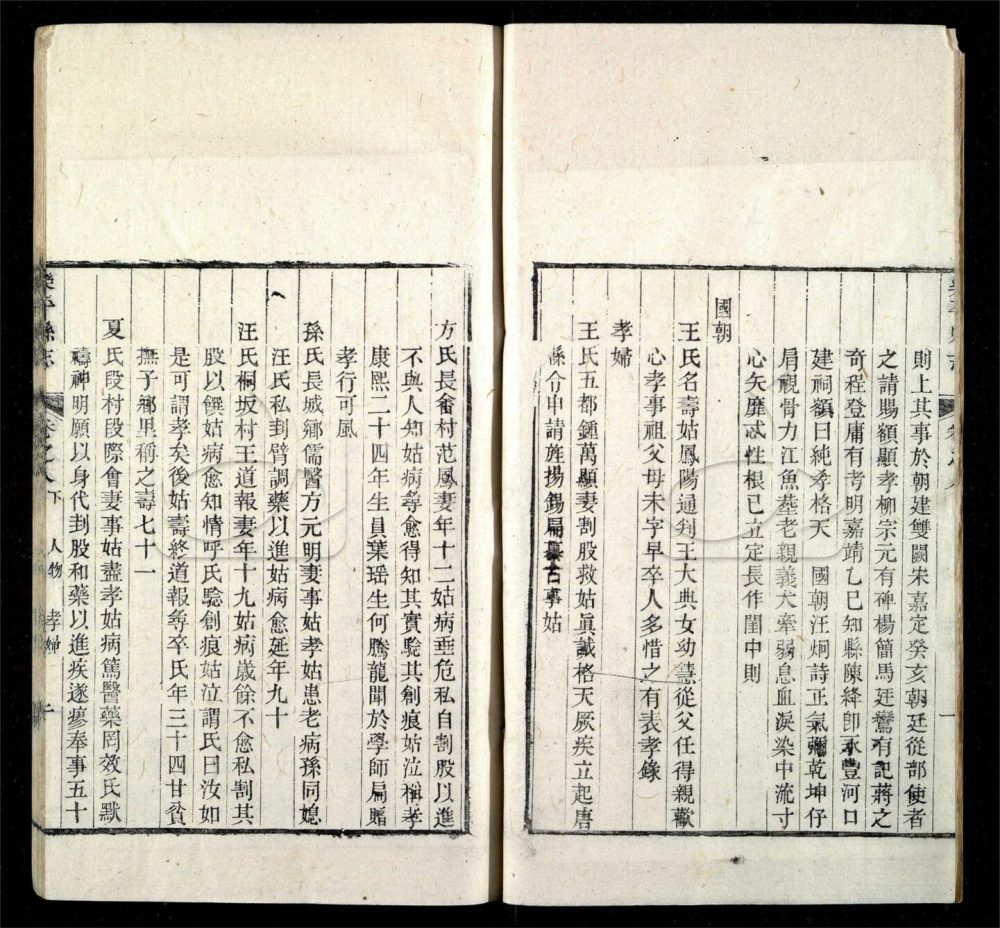 則上其事於朝建雙闕宋嘉定癸亥朝廷從部使者
之請賜額顯孝柳宗元有碑楊簡馬廷鸞有記蔣之
奇程登庸有考明嘉靖乙巳知縣陳絳卽永豐河口
建祠額曰純孝格天　國朝汪炯詩正氣彌乾坤仔
肩視骨力江魚塟老親義犬牽弱息血淚染中流寸
心矢靡忒性根已立定長作閨中則
國朝
王氏名壽姑鳳陽通判王大典女幼慧從父任得親歡
心孝事祖父母未字早卒人多惜之有表孝錄
孝婦
王氏五都鍾萬顯妻割股救姑眞誠格天厥疾立起唐
縣令申請旌揚錫扁纂古事姑
方氏長畬村范鳳妻年十二姑病垂危私自割股以進
不與人知姑病尋愈得知其實騐其創痕姑泣稱孝
康熙二十四年生員葉瑶生何騰龍聞於學師扁贈
孝行可風
孫氏長城鄉儒醫方元明妻事姑孝姑患老病孫同媳
汪氏私刲臂調藥以進姑病愈延年九十
汪氏桐坂村王道報妻年十九姑病歲餘不愈私割其
股以饌姑病愈知情呼氏騐創痕姑泣謂氏曰汝如
是可謂孝矣後姑壽終道報㝷卒氏年三十四甘貧
撫子鄉里稱之壽七十一
夏氏段村段際會妻事姑盡孝姑病篤醫藥罔效氏默
禱神明願以身代刲股和藥以進疾遂瘳奉事五十
樂平縣志
卷之八下　人物　孝婦